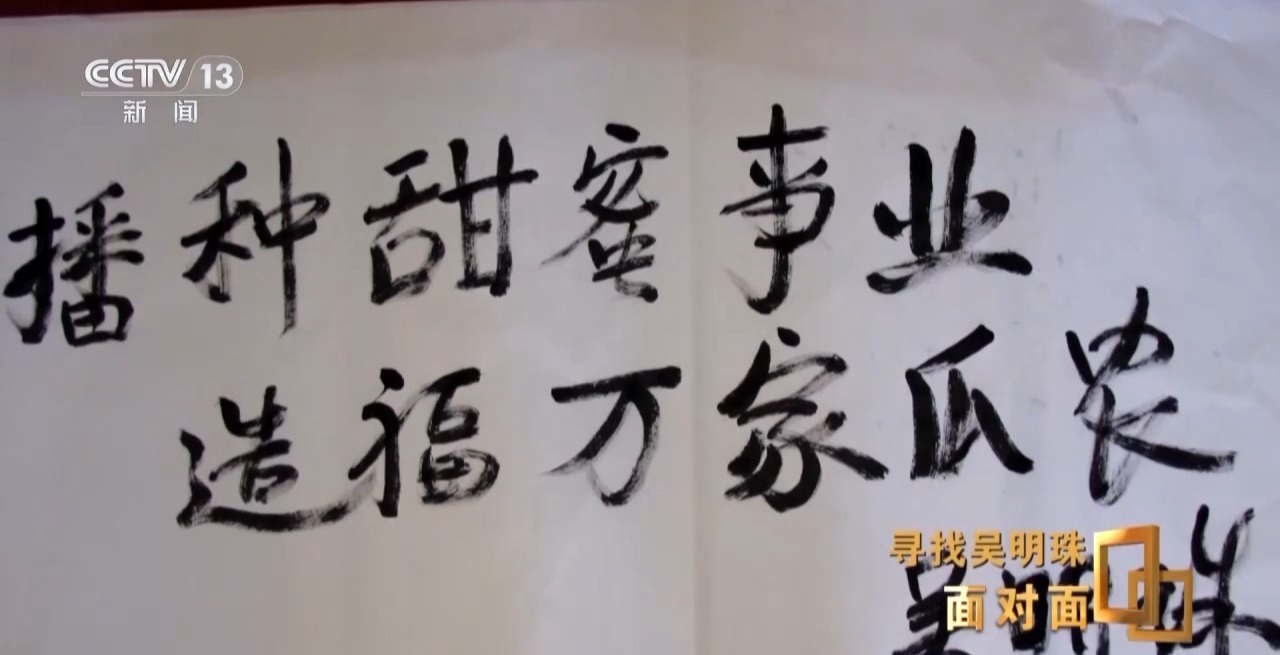 CCTV 13
新闻
播种甜蜜事业
造福万家瓜农
吴明珠
寻找吴明珠
面对面